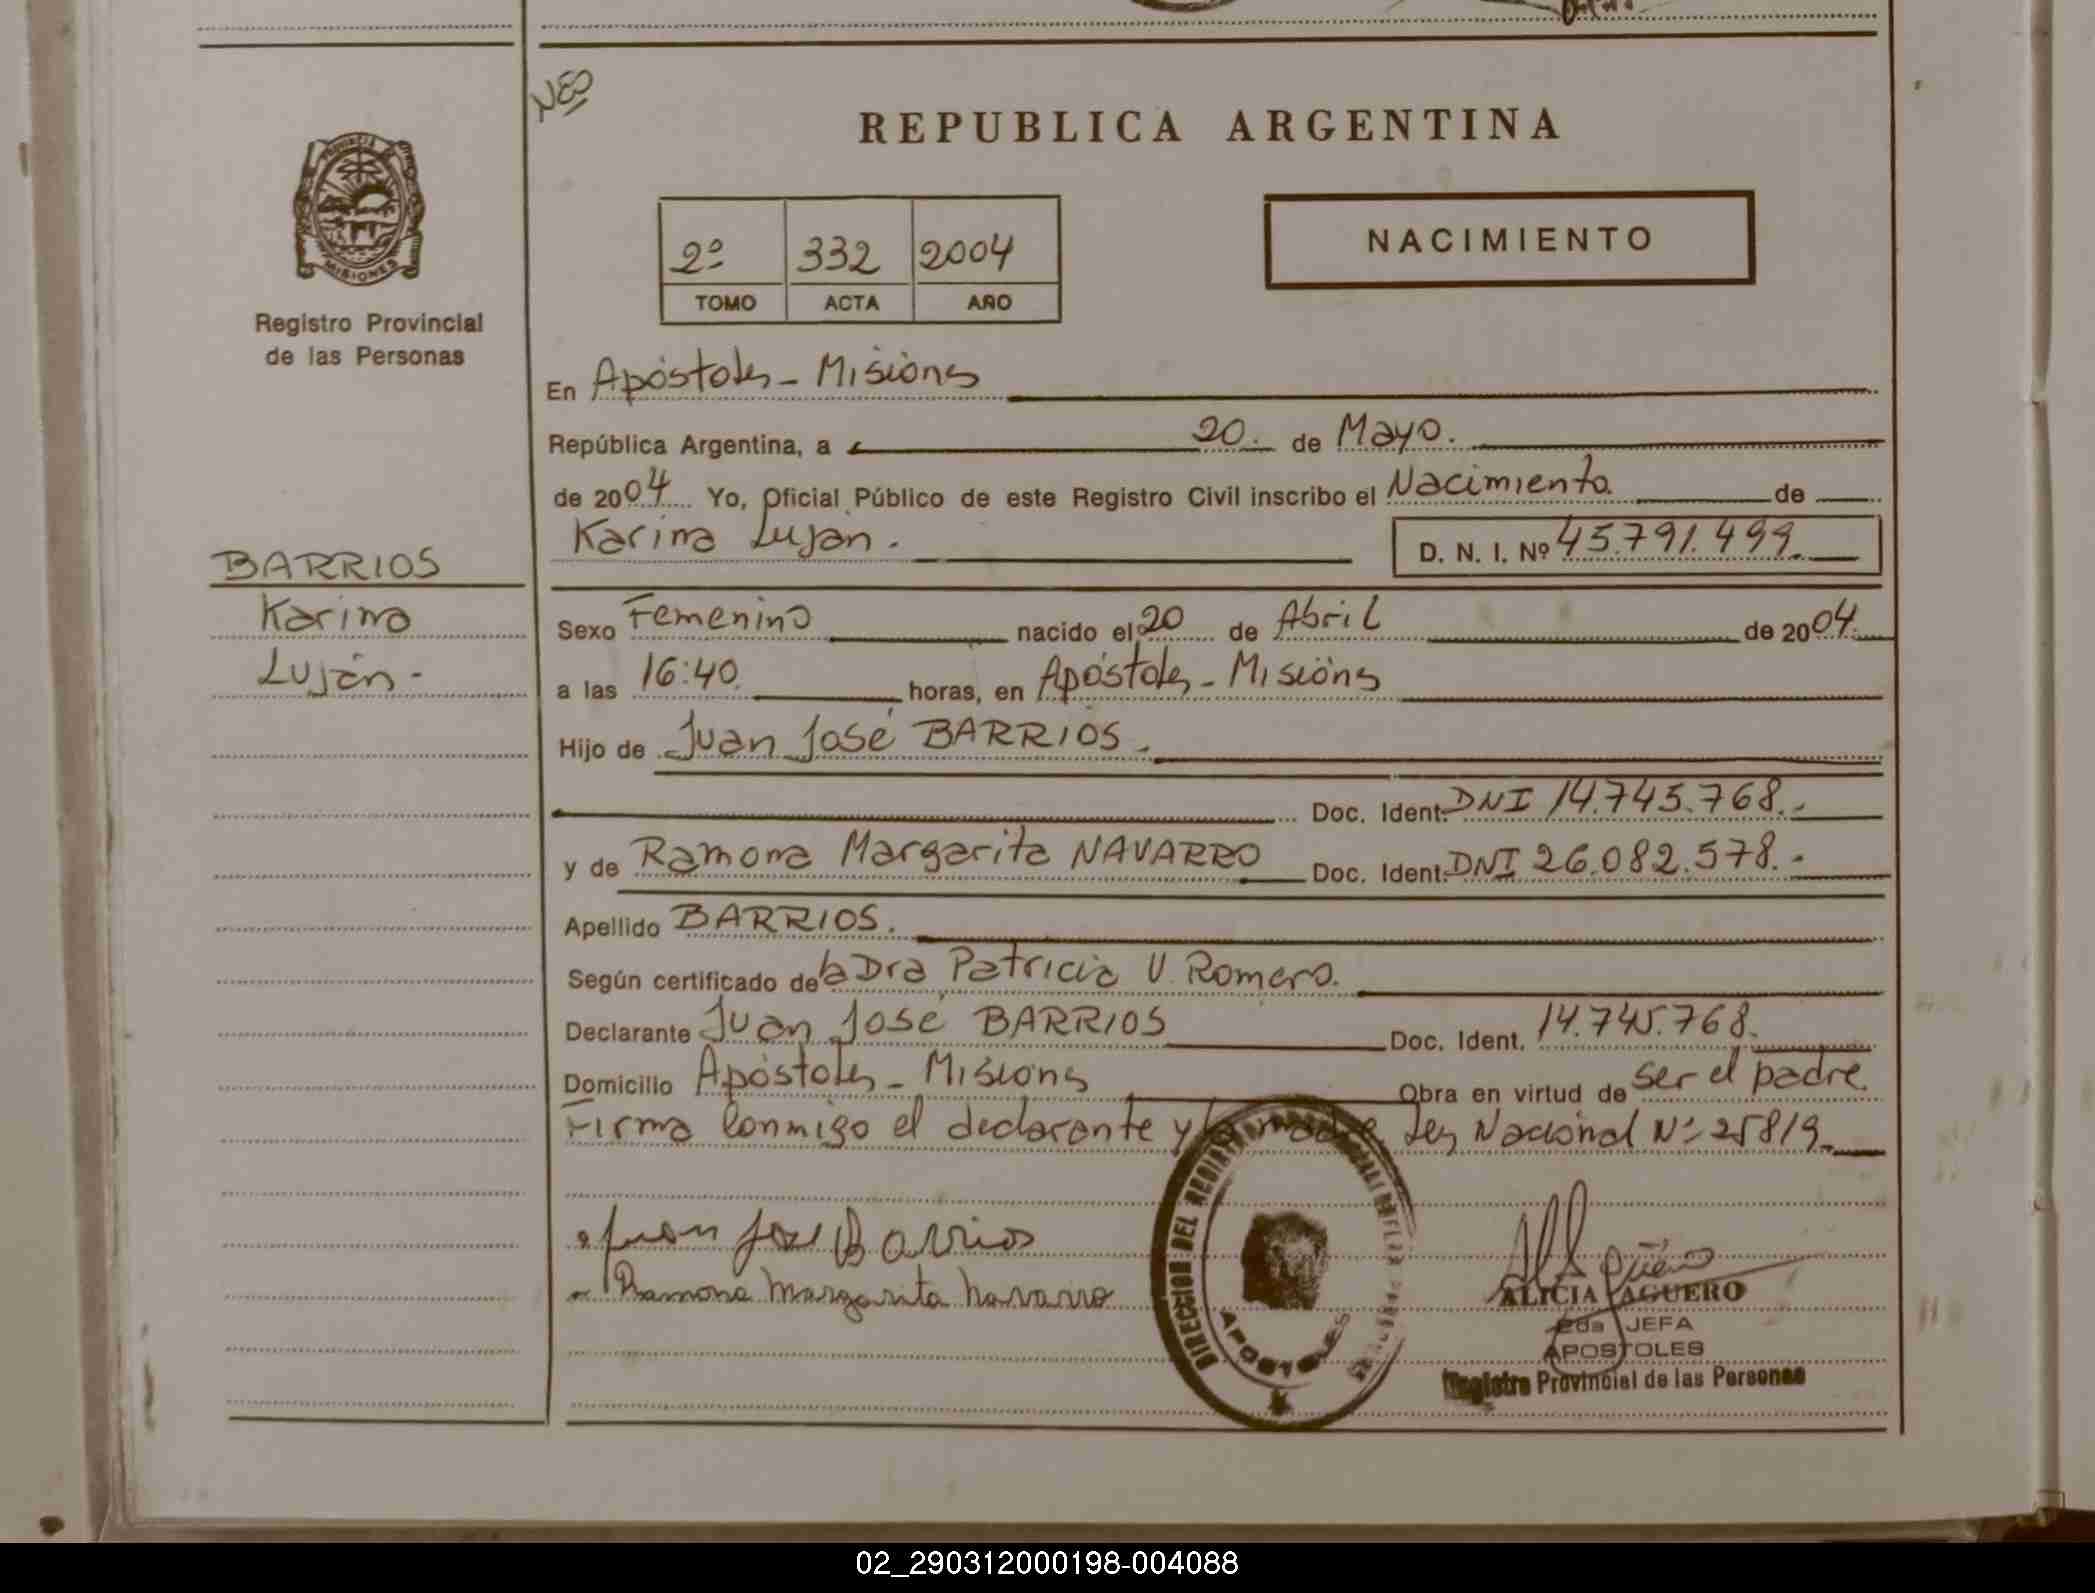 NES
PROVINCIA DE
MISIONES
Registro Provincial
de las Personas
BARRIOS
Karina
Luján -
REPUBLICA ARGENTINA
2º 332 2004
TOMO ACTA AÑO
NACIMIENTO
En Apóstoles - Misiones
República Argentina, a 20. de Mayo.
de 2004 Yo, Oficial Público de este Registro Civil inscribo el Nacimiento de
Karina Luján. D. N. I. Nº 45.791.499.
Sexo Femenino nacido el 20 de Abril de 2004.
a las 16:40. horas, en Apóstoles - Misiones
Hijo de Juan José BARRIOS.
Doc. Ident. DNI 14.745.768.-
y de Ramona Margarita NAVARRO Doc. Ident. DNI 26.082.578.-
Apellido BARRIOS.
Según certificado de la Dra Patricia V. Romero.
Declarante Juan José BARRIOS Doc. Ident. 14.745.768.
Domicilio Apóstoles - Misiones Obra en virtud de ser el padre.
Firma conmigo el declarante y la madre. Ley Nacional Nº 25819.
Juan Jose Barrios
Ramona Margarita Navarro
DIRECCION DEL REGISTRO PROVINCIAL DE LAS PERSONAS
APOSTOLES
ALICIA AGUERO
2da JEFA
APOSTOLES
Registro Provincial de las Personas
02_290312000198-004088